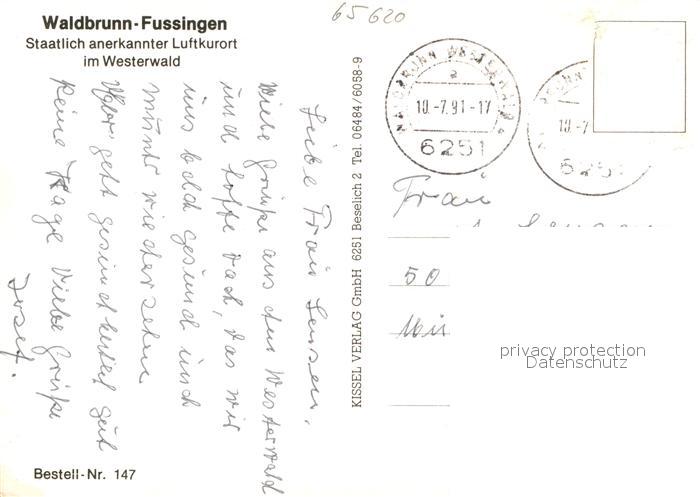 65620
Waldbrunn-Fussingen
Staatlich anerkannter Luftkurort
im Westerwald
Liebe Frau
Liebe Grüße aus dem Westerwald
und hoffe doch, das wir
uns bald gesund und
munter wiedersehen
geht gesundheitlich gut
keine Klage Liebe Grüße
Josef.
Bestell-Nr. 147
KISSEL VERLAG GmbH 6251 Beselich 2 Tel. 06484/6058-9
WALDBRUNN WESTERWALD
a
10.-7.91-17
6251
10.-7
6251
Frau
50
privacy protection
Datenschutz